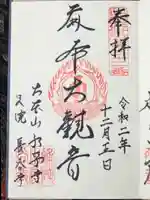 奉拝
令和二年
十二月五日
麻布大観音
大本山永平寺
別院 長谷寺